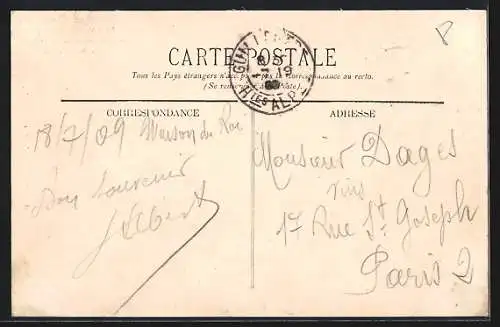 CARTE POSTALE
Tous les Pays étrangers n'acceptent pas la Correspondance au recto.
(Se renseigner à la Poste).
CORRESPONDANCE
ADRESSE
18/7/09 Maison du Roi
Bon Souvenir
Monsieur Dages
vins
17 Rue St Joseph
Paris 2